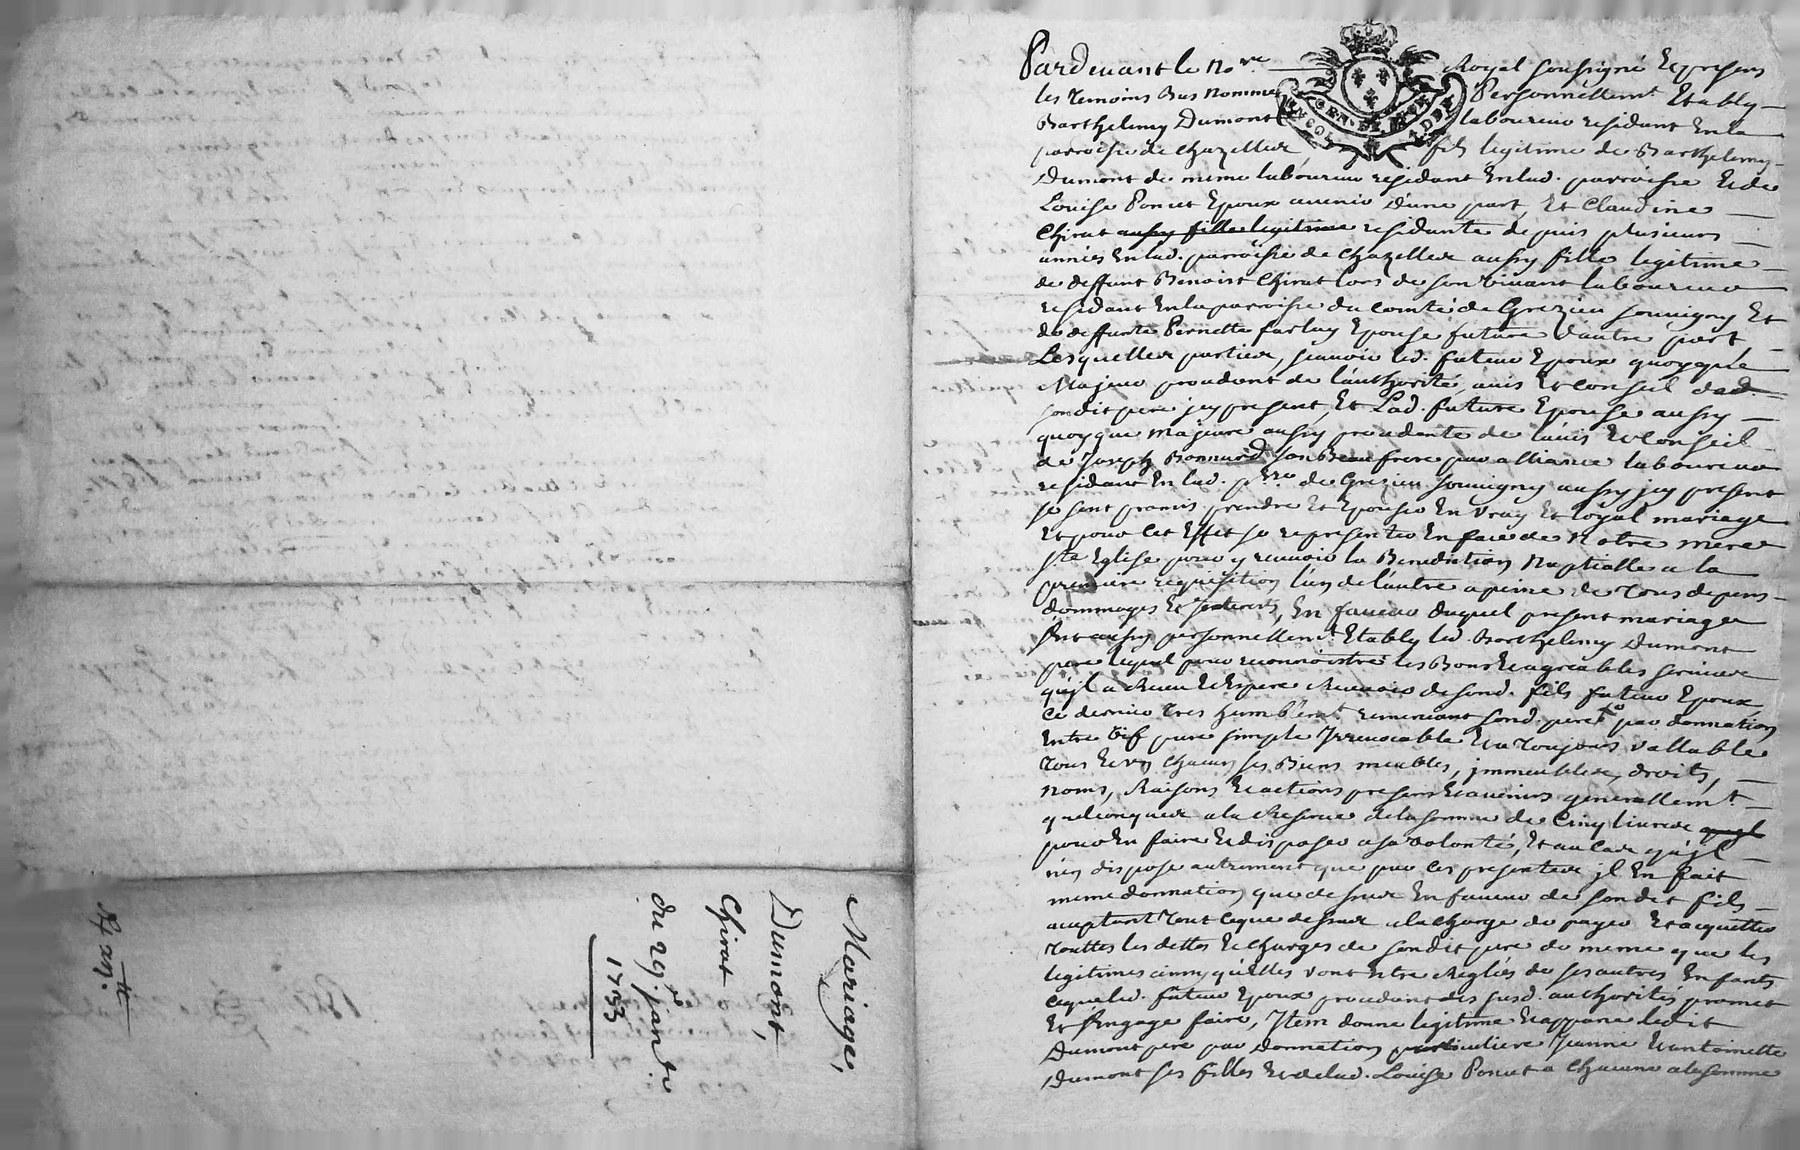 Mariage,
Dumont,
Chirat
du 29e janvr
1753
Pardevant le nore Royal soussigné Et presens
les temoins Bas nommés Personnellemt Etably
GEN. DE LYON
Barthelemy Dumont laboureur residant En la
parroisse de chazelles fils legitime de Barthelemy
Dumont de meme laboureur residant En lad. parroisse Et de
Louise Poncet Epoux avenir d'une part, Et Claudine
Chirat aussy fille legitime residante depuis plusieurs
années En lad. parroisse de chazelles aussy fille legitime
de deffunt Benoist Chirat lors de son vivant laboureur
residant En la parroisse du comté de Grezieu souvigny Et
de deffunte Pernette farlay Epouse future d'autre part
Lesquelles parties, scavoir led. futeur Epoux quoyque
Majeur procedant de l'authorité, avis Et conseil dud.
sondit pere jcy present, Et Lad. future Epouse aussy
quoyque majeure aussy procedante de l'avis Et Conseil
de Joseph Bonnard son Beau frere par alliance laboureur
residant En lad. prre de Grezieu souvigny aussy jcy present
se sont promis prendre Et Epouser En vray Et loyal mariage
Et pour cet Effet se representer En face de Notre mere
Ste Eglise pour y recevoir la Benediction Nuptialle a la
premiere requisition l'un de l'autre a peine de tous depens
dommages Et jnterets, En faveur duquel present mariage
s'est aussy personnellemt Etably led. Barthelemy Dumont
pere lequel pour reconnoistre les Bons Et agreables services
qu'jl a Receu Et Espere Recevoir de sond. fils futeur Epoux
ce dernier tres humblemt remerciant sond. pere par donnation
Entre vif pure simple Jrrevocable Et a toujours vallable
tous Et un chacun ses Biens meubles, jmmeubles, droits,
noms, Raisons Et actions presens Et avenirs generallemt
quelconques a la Reserve de la somme de Cinq livres
pour En faire Et disposer a sa volonté, Et au cas qu'jl
n'en dispose autrement que par ces presentes jl En fait
meme donnation que dessus En faveur de son dit fils
acceptant tout ce que dessus a la charge de payer Et acquitter
touttes les dettes Et charges de sondit pere de meme que les
legitimes ainsy qu'elles vont Etre Reglés de ses autres Enfants
ce que led. futeur Epoux procedant des susd. authorités promet
Et s'Engage faire, Jtem donne legitime Et appane ledit
Dumont pere par donnation particuliere Jeanne Et antoinette
Dumont ses filles Et de lad. Louise Poncet a Chacune a la somme